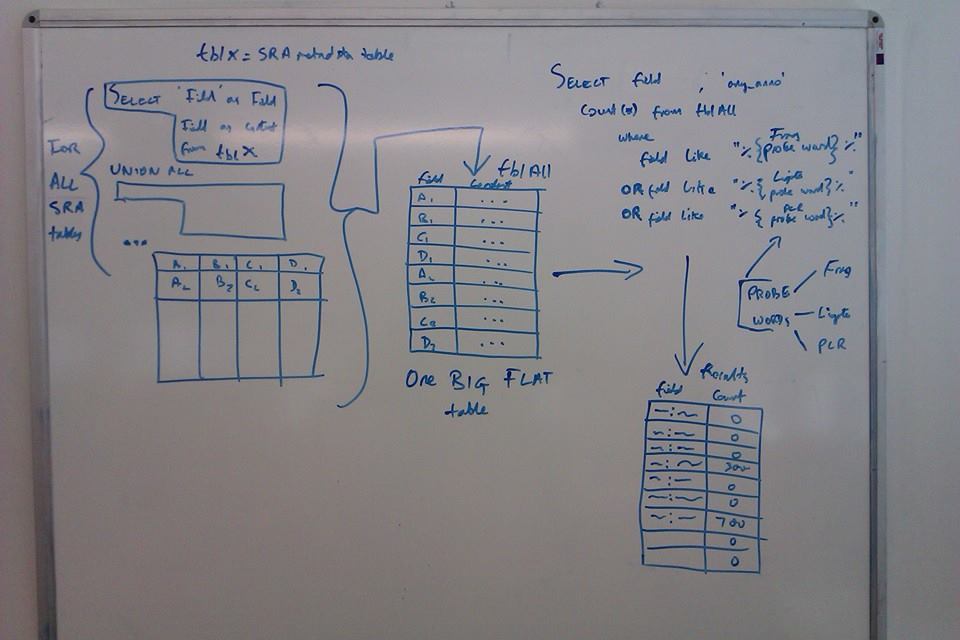 tblx = SRA metadata table
FOR
ALL
SRA
tables
SELECT 'Field' as Field
Field as content
from tblX
UNION ALL
...
A1 B1 C1 D1
A2 B2 C2 D2
tblAll
Field Content
A1 ...
B1 ...
C1 ...
D1 ...
A2 ...
B2 ...
C2 ...
D2 ...
One BIG FLAT
table
SELECT field , 'any_anno'
Count(*) from tblAll
where
field like "%{Frag probe word}%"
OR field like "%{Ligate probe word}%"
OR field like "%{PCR probe word}%"
PROBE
WORDS
Frag
Ligate
PCR
Results
field Count
~:~ 0
~:~ 0
~:~ 0
~:~ 300
~:~ 0
~:~ 0
~:~ 700
0
0